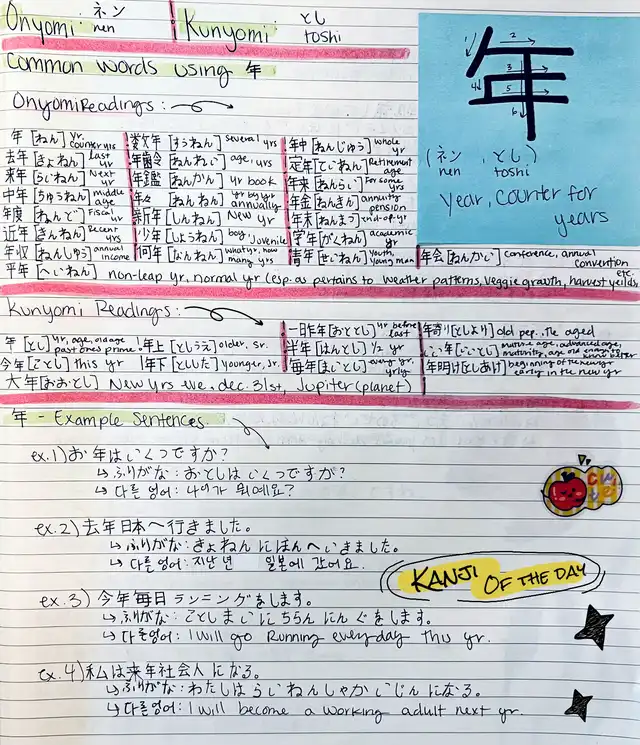 Onyomi: ネン nen
Kunyomi: とし toshi
Common words using 年
Onyomi Readings:
年 [ねん] yr, counter yrs
数年 [すうねん] several yrs
年中 [ねんじゅう] whole yr
去年 [きょねん] Last yr
年齢 [ねんれい] age, yrs
定年 [ていねん] Retirement age
来年 [らいねん] Next yr
年鑑 [ねんかん] yr book
年来 [ねんらい] For some yrs
中年 [ちゅうねん] middle age
年々 [ねんねん] yr by yr annually
年金 [ねんきん] annuity pension
年度 [ねんど] Fiscal yr
新年 [しんねん] New yr
年末 [ねんまつ] end-of-yr
近年 [きんねん] Recent yrs
少年 [しょうねん] boy, Juvenile
学年 [がくねん] academic yr
年収 [ねんしゅう] annual income
何年 [なんねん] what yr, how many yrs
青年 [せいねん] Youth, Young man
年会 [ねんかい] conference, annual convention etc.
平年 [へいねん] non-leap yr, normal yr (esp. as pertains to weather patterns, veggie growth, harvest yeilds.
年
1 2 3 4 5 6
(ネン, とし)
nen toshi
Year, Counter for years
Kunyomi Readings:
一昨年 [おととし] yr before last
年寄り [としより] old pep., the aged
年 [とし] yr, age, old age past ones prime
年上 [としうえ] older, sr.
半年 [はんとし] 1/2 yr
いい年 [いいとし] mature age, advanced age, maturity, age old enough to know better
今年 [ことし] this yr
年下 [としした] younger, jr.
毎年 [まいとし] every yr, yrly
年明け [としあけ] beginning of the new yr early in the new yr
大年 [おおとし] New yrs eve, dec. 31st, Jupiter (planet)
年 - Example Sentences
ex.1) お年はいくつですか?
↳ ふりがな: おとしはいくつですか?
↳ 다른 언어: 나이가 뭐예요?
ex.2) 去年日本へ行きました。
↳ ふりがな: きょねん にほんへ いきました。
↳ 다른 언어: 지난 년 일본에 갔어요.
KANJI OF THE DAY
ex.3) 今年毎日ランニングをします。
↳ ふりがな: ことし まいにちらんにんぐをします。
↳ 다른 언어: I will go Running everyday this yr.
ex.4) 私は来年社会人になる。
↳ ふりがな: わたしは らいねんしゃかいじん になる。
↳ 다른 언어: I will become a working adult next yr.